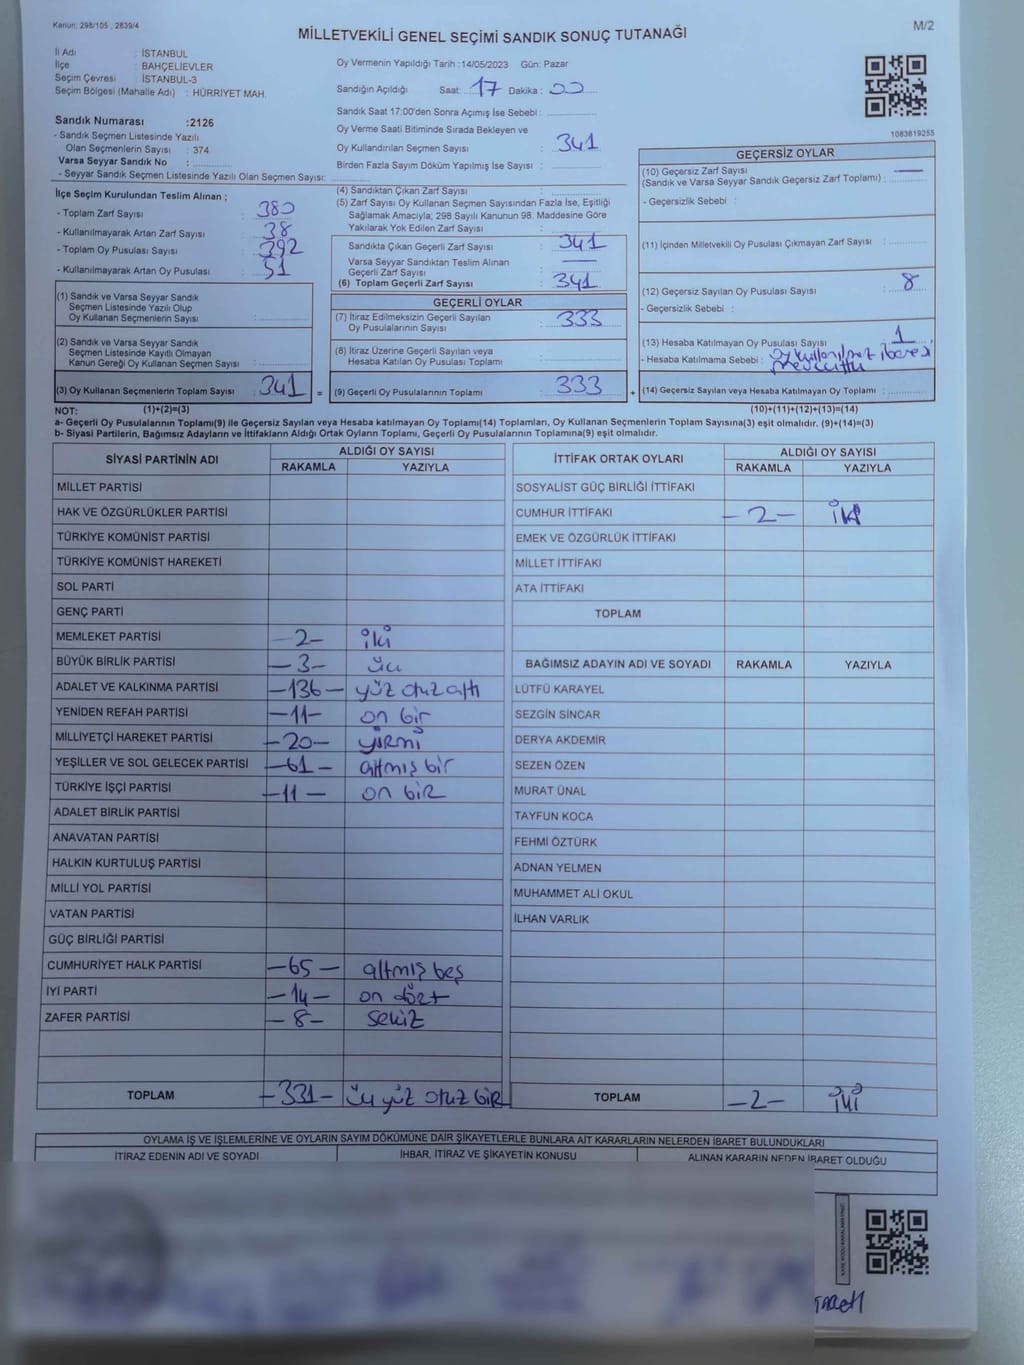 Kanun: 298/105 , 2839/4
M/2
MİLLETVEKİLİ GENEL SEÇİMİ SANDIK SONUÇ TUTANAĞI
İl Adı : İSTANBUL
İlçe : BAHÇELİEVLER
Seçim Çevresi : İSTANBUL-3
Seçim Bölgesi (Mahalle Adı) : HÜRRİYET MAH.
Sandık Numarası :2126
- Sandık Seçmen Listesinde Yazılı
Olan Seçmenlerin Sayısı : 374
Varsa Seyyar Sandık No :
- Seyyar Sandık Seçmen Listesinde Yazılı Olan Seçmen Sayısı:
Oy Vermenin Yapıldığı Tarih :14/05/2023 Gün: Pazar
Sandığın Açıldığı Saat: 17 Dakika : 00
Sandık Saat 17:00'den Sonra Açımış İse Sebebi :
Oy Verme Saati Bitiminde Sırada Bekleyen ve
Oy Kullandırılan Seçmen Sayısı : 341
Birden Fazla Sayım Döküm Yapılmış İse Sayısı :
1083619255
İlçe Seçim Kurulundan Teslim Alınan ;
- Toplam Zarf Sayısı : 380
- Kullanılmayarak Artan Zarf Sayısı : 38
- Toplam Oy Pusulası Sayısı : 392
- Kullanılmayarak Artan Oy Pusulası : 51
(1) Sandık ve Varsa Seyyar Sandık
Seçmen Listesinde Yazılı Olup
Oy Kullanan Seçmenlerin Sayısı :
(2) Sandık ve Varsa Seyyar Sandık
Seçmen Listesinde Kayıtlı Olmayan
Kanun Gereği Oy Kullanan Seçmen Sayısı :
(3) Oy Kullanan Seçmenlerin Toplam Sayısı : 341 =
(4) Sandıktan Çıkan Zarf Sayısı :
(5) Zarf Sayısı Oy Kullanan Seçmen Sayısından Fazla İse, Eşitliği
Sağlamak Amacıyla; 298 Sayılı Kanunun 98. Maddesine Göre
Yakılarak Yok Edilen Zarf Sayısı :
Sandıkta Çıkan Geçerli Zarf Sayısı : 341
Varsa Seyyar Sandıktan Teslim Alınan
Geçerli Zarf Sayısı : —
(6) Toplam Geçerli Zarf Sayısı : 341
GEÇERLİ OYLAR
(7) İtiraz Edilmeksizin Geçerli Sayılan
Oy Pusulalarının Sayısı : 333
(8) İtiraz Üzerine Geçerli Sayılan veya
Hesaba Katılan Oy Pusulası Toplamı :
(9) Geçerli Oy Pusulalarının Toplamı : 333 +
GEÇERSİZ OYLAR
(10) Geçersiz Zarf Sayısı
(Sandık ve Varsa Seyyar Sandık Geçersiz Zarf Toplamı) : —
- Geçersizlik Sebebi :
(11) İçinden Milletvekili Oy Pusulası Çıkmayan Zarf Sayısı :
(12) Geçersiz Sayılan Oy Pusulası Sayısı : 8
- Geçersizlik Sebebi :
(13) Hesaba Katılmayan Oy Pusulası Sayısı : 1
- Hesaba Katılmama Sebebi : Oy kullanılmaz ibaresi
mevcuttu
(14) Geçersiz Sayılan veya Hesaba Katılmayan Oy Toplamı :
NOT: (1)+(2)=(3) (10)+(11)+(12)+(13)=(14)
a- Geçerli Oy Pusulalarının Toplamı(9) ile Geçersiz Sayılan veya Hesaba katılmayan Oy Toplamı(14) Toplamları, Oy Kullanan Seçmenlerin Toplam Sayısına(3) eşit olmalıdır. (9)+(14)=(3)
b- Siyasi Partilerin, Bağımsız Adayların ve İttifakların Aldığı Ortak Oyların Toplamı, Geçerli Oy Pusulalarının Toplamına(9) eşit olmalıdır.
SİYASİ PARTİNİN ADI ALDIĞI OY SAYISI
RAKAMLA YAZIYLA
MİLLET PARTİSİ
HAK VE ÖZGÜRLÜKLER PARTİSİ
TÜRKİYE KOMÜNİST PARTİSİ
TÜRKİYE KOMÜNİST HAREKETİ
SOL PARTİ
GENÇ PARTİ
MEMLEKET PARTİSİ -2- iki
BÜYÜK BİRLİK PARTİSİ -3- üç
ADALET VE KALKINMA PARTİSİ -136- yüz otuz altı
YENİDEN REFAH PARTİSİ -11- on bir
MİLLİYETÇİ HAREKET PARTİSİ -20- yirmi
YEŞİLLER VE SOL GELECEK PARTİSİ -61- altmış bir
TÜRKİYE İŞÇİ PARTİSİ -11- on bir
ADALET BİRLİK PARTİSİ
ANAVATAN PARTİSİ
HALKIN KURTULUŞ PARTİSİ
MİLLİ YOL PARTİSİ
VATAN PARTİSİ
GÜÇ BİRLİĞİ PARTİSİ
CUMHURİYET HALK PARTİSİ -65- altmış beş
İYİ PARTİ -14- on dört
ZAFER PARTİSİ -8- sekiz
TOPLAM -331- üç yüz otuz bir
İTTİFAK ORTAK OYLARI ALDIĞI OY SAYISI
RAKAMLA YAZIYLA
SOSYALİST GÜÇ BİRLİĞİ İTTİFAKI
CUMHUR İTTİFAKI -2- iki
EMEK VE ÖZGÜRLÜK İTTİFAKI
MİLLET İTTİFAKI
ATA İTTİFAKI
TOPLAM
BAĞIMSIZ ADAYIN ADI VE SOYADI RAKAMLA YAZIYLA
LÜTFÜ KARAYEL
SEZGİN SİNCAR
DERYA AKDEMİR
SEZEN ÖZEN
MURAT ÜNAL
TAYFUN KOCA
FEHMİ ÖZTÜRK
ADNAN YELMEN
MUHAMMET ALİ OKUL
İLHAN VARLIK
TOPLAM -2- iki
OYLAMA İŞ VE İŞLEMLERİNE VE OYLARIN SAYIM DÖKÜMÜNE DAİR ŞİKAYETLERLE BUNLARA AİT KARARLARIN NELERDEN İBARET BULUNDUKLARI
İTİRAZ EDENİN ADI VE SOYADI İHBAR, İTİRAZ VE ŞİKAYETİN KONUSU ALINAN KARARIN NEDEN İBARET OLDUĞU